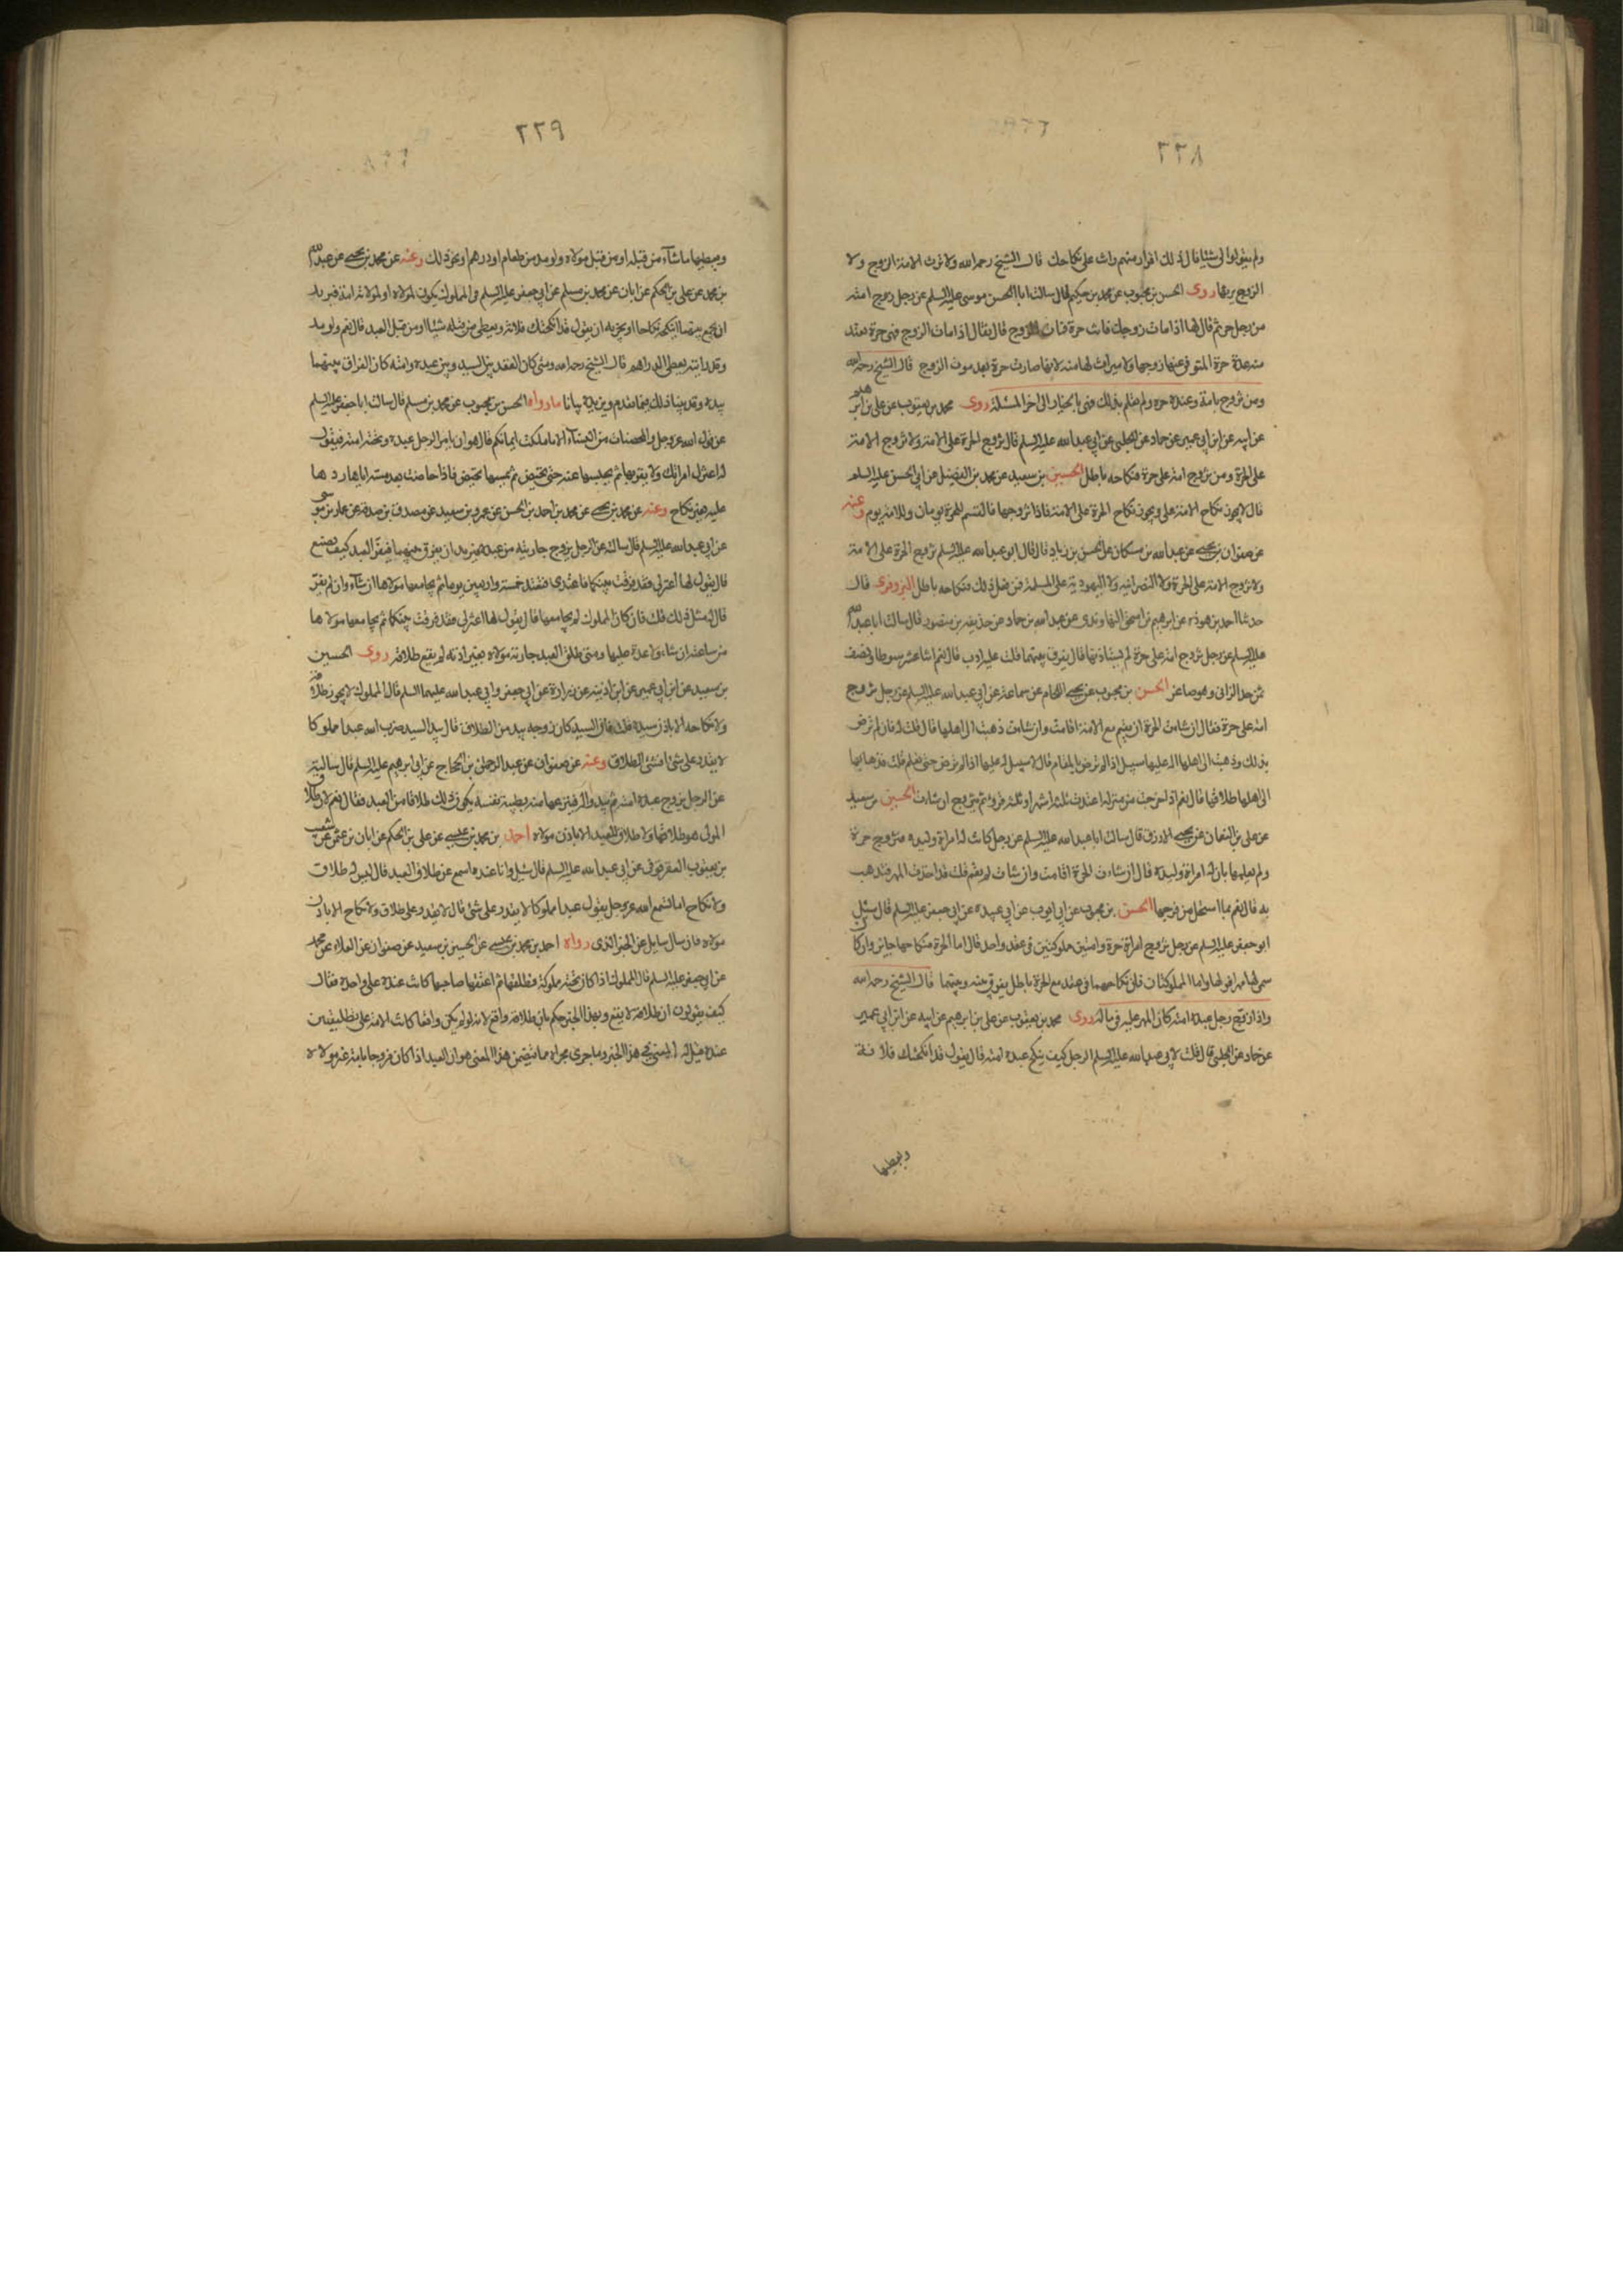 ٢٢٨
ولم يقولوا لي شيئا قال ذلك اقرار منهم وانت على نكاحك قال الشيخ رحمه الله ولا ترث الامة الزوج ولا
الزوج يرثها روى الحسن بن محبوب عن محمد بن حكيم قال سالت ابا الحسن موسى عليه السلم عن رجل زوج امته
من رجل حر ثم قال لها اذا مات زوجك فانت حرة فمات الزوج قال فقال اذا مات الزوج فهى حرة تعتد
منه عدة حرة المتوفى عنها زوجها ولا ميراث لها منه لانها صارت حرة بعد موت الزوج قال الشيخ رحمه الله
ومن تزوج بامة وعنده حرة ولم تعلم بذلك فهى بالخيار الى اخر المسئلة روى محمد بن يعقوب عن على بن ابرهيم
عن ابيه عن ابن ابي عمير عن حماد عن الحلبي عن ابي عبد الله عليه السلم قال تزوج الحرة على الامة ولا تزوج الامة
على الحرة ومن تزوج امة على حرة فنكاحه باطل الحسين بن سعيد عن محمد بن الفضيل عن ابي الحسن عليه السلم
قال لا يجوز نكاح الامة على ويجوز نكاح الحرة على الامة فاذا تزوجها فالقسم للحرة يومان وللامة يوم وعنه
عن صفوان بن يحيى عن عبد الله بن مسكان عن الحسن بن زياد قال قال ابو عبد الله عليه السلم تزوج الحرة على الامة
ولا تزوج الامة على الحرة ولا النصرانية ولا اليهودية على المسلمة فمن فعل ذلك فنكاحه باطل البزوفرى قال
حدثنا احمد بن هوذه عن ابرهيم بن اسحق النهاوندى عن عبد الله بن حماد عن حذيفة بن منصور قال سالت ابا عبد الله
عليه السلم عن رجل تزوج امة على حرة لم يستاذنها قال يفرق بينهما قلت عليه ادب قال نعم اثنا عشر سوطا ونصف
ثمن حد الزانى وهو صاغر الحسن بن محبوب عن يحيى اللحام عن سماعة عن ابي عبد الله عليه السلم عن رجل تزوج
امة على حرة فقال ان شاءت الحرة ان تقيم مع الامة اقامت وان شاءت ذهبت الى اهلها قال قلت له فان لم ترض
بذلك وذهبت الى اهلها اله عليها سبيل اذا لم ترض بالمقام قال لا سبيل له عليها اذا لم ترض حتى تعلم قلت فذهابها
الى اهلها طلاقها قال نعم اذا خرجت من منزله اعتدت ثلثة اشهر او ثلثة قروء ثم تتزوج ان شاءت الحسين بن سعيد
عن على بن النعمان عن يحيى الازرق قال سالت ابا عبد الله عليه السلم عن رجل كانت له امراة وليدة فتزوج حرة
ولم يعلمها بان له امراة وليدة قال ان شاءت الحرة اقامت وان شاءت لم تقم قلت قد اخذت المهر فتذهب
به قال نعم بما استحل من فرجها الحسن بن محبوب عن ابي ايوب عن ابي عبيدة عن ابي جعفر عليه السلم قال سئل
ابو جعفر عليه السلم عن رجل تزوج امراة حرة وامتين مملوكتين في عقد واحد قال اما الحرة فنكاحها جائز وان كان
سمى لها مهرا فهو لها واما المملوكتان فان نكاحهما في عقد مع الحرة باطل يفرق بينه وبينهما قال الشيخ رحمه الله
واذا زوج رجل عبده امته كان المهر عليه في ماله روى محمد بن يعقوب عن على بن ابرهيم عن ابيه عن ابن ابي عمير
عن حماد عن الحلبي قال قلت لابي عبد الله عليه السلم الرجل كيف ينكح عبده امته قال يقول قد انكحتك فلانة
ويعطيها
٢٢٩
ويعطيها ما شاء من قبله او من قبل مولاه ولو مد من طعام او درهم او نحو ذلك وعنه عن محمد بن يحيى عن عبد الله
بن محمد عن على بن الحكم عن ابان عن محمد بن مسلم عن ابي جعفر عليه السلم في المملوك يكون لمولاه او لمولاته امة فيريد
ان يجمع بينهما اينكحه نكاحا او يجزيه ان يقول قد انكحتك فلانة ويعطى من قبله شيئا او من قبل العبد قال نعم ولو مد
وقد رايته يعطى الدراهم قال الشيخ رحمه الله ومتى كان العقد بين السيد وبين عبده وامته كان الفراق بينهما
بيده وقد بينا ذلك فيما تقدم ويزيده بيانا ما رواه الحسن بن محبوب عن محمد بن مسلم قال سالت ابا جعفر عليه السلم
عن قول الله عز وجل والمحصنات من النساء الا ما ملكت ايمانكم قال هو ان يامر الرجل عبده وتحته امته فيقول
له اعتزل امراتك ولا تقربها ثم يحبسها عنه حتى تحيض ثم يمسها فاذا حاضت بعد مسه اياها ردها
عليه بغير نكاح وعنه عن محمد بن يحيى عن محمد بن احمد بن الحسن عن عمرو بن سعيد عن مصدق بن صدقة عن عمار بن موسى
عن ابي عبد الله عليه السلم قال سالته عن الرجل يزوج جاريته من عبده فيريد ان يفرق بينهما فيفر العبد كيف يصنع
قال يقول لها اعتزلى فقد فرقت بينكما فاعتدى فتعتد خمسة واربعين يوما ثم يجامعها مولاها ان شاء وان لم يفر
قال له مثل ذلك قلت فان كان المملوك لم يجامعها قال يقول لها اعتزلى فقد فرقت بينكما ثم يجامعها مولاها
من ساعته ان شاء ولا عدة عليها ومتى طلق العبد جارية مولاه بغير اذنه لم يقع طلاقه روى الحسين
بن سعيد عن ابن ابي عمير عن ابن اذينة عن زرارة عن ابي جعفر وابي عبد الله عليهما السلم قال المملوك لا يجوز طلاقه
ولا نكاحه الا باذن سيده قلت فان السيد كان زوجه بيد من الطلاق قال بيد السيد ضرب الله عبدا مملوكا
لا يقدر على شئ افشئ الطلاق وعنه عن صفوان عن عبد الرحمن بن الحجاج عن ابي ابرهيم عليه السلم قال سالته
عن الرجل يزوج عبده امته ثم يبدو له فينزعها منه بطيبة نفسه ايكون ذلك طلاقا من العبد فقال نعم لان طلاق
المولى هو طلاقها ولا طلاق للعبد الا باذن مولاه احمد بن محمد بن عيسى عن على بن الحكم عن ابان بن عثمن عن شعيب
بن يعقوب العقرقوفى عن ابي عبد الله عليه السلم قال سئل وانا عنده اسمع عن طلاق العبد قال ليس له طلاق
ولا نكاح اما تسمع الله عز وجل يقول عبدا مملوكا لا يقدر على شئ قال لا يقدر على طلاق ولا نكاح الا باذن
مولاه فان سال سايل عن الخبر الذى رواه احمد بن محمد بن عيسى عن الحسين بن سعيد عن صفوان عن العلاء عن محمد
عن ابي جعفر عليه السلم قال المملوك اذا كان تحته مملوكة فطلقها ثم اعتقها صاحبها كانت عنده على واحدة فقال
كيف يقولون ان طلاقه لا يقع وبهذا الخبر حكم بان طلاقه واقع لانه لو لم يكن واقعا كانت الامة على تطليقتين
عنده قيل له المعنى في هذا الخبر وما جرى مجراه مما تضمن هذا المعنى هو ان العبد اذا كان مزوجا بامة غير مولاه